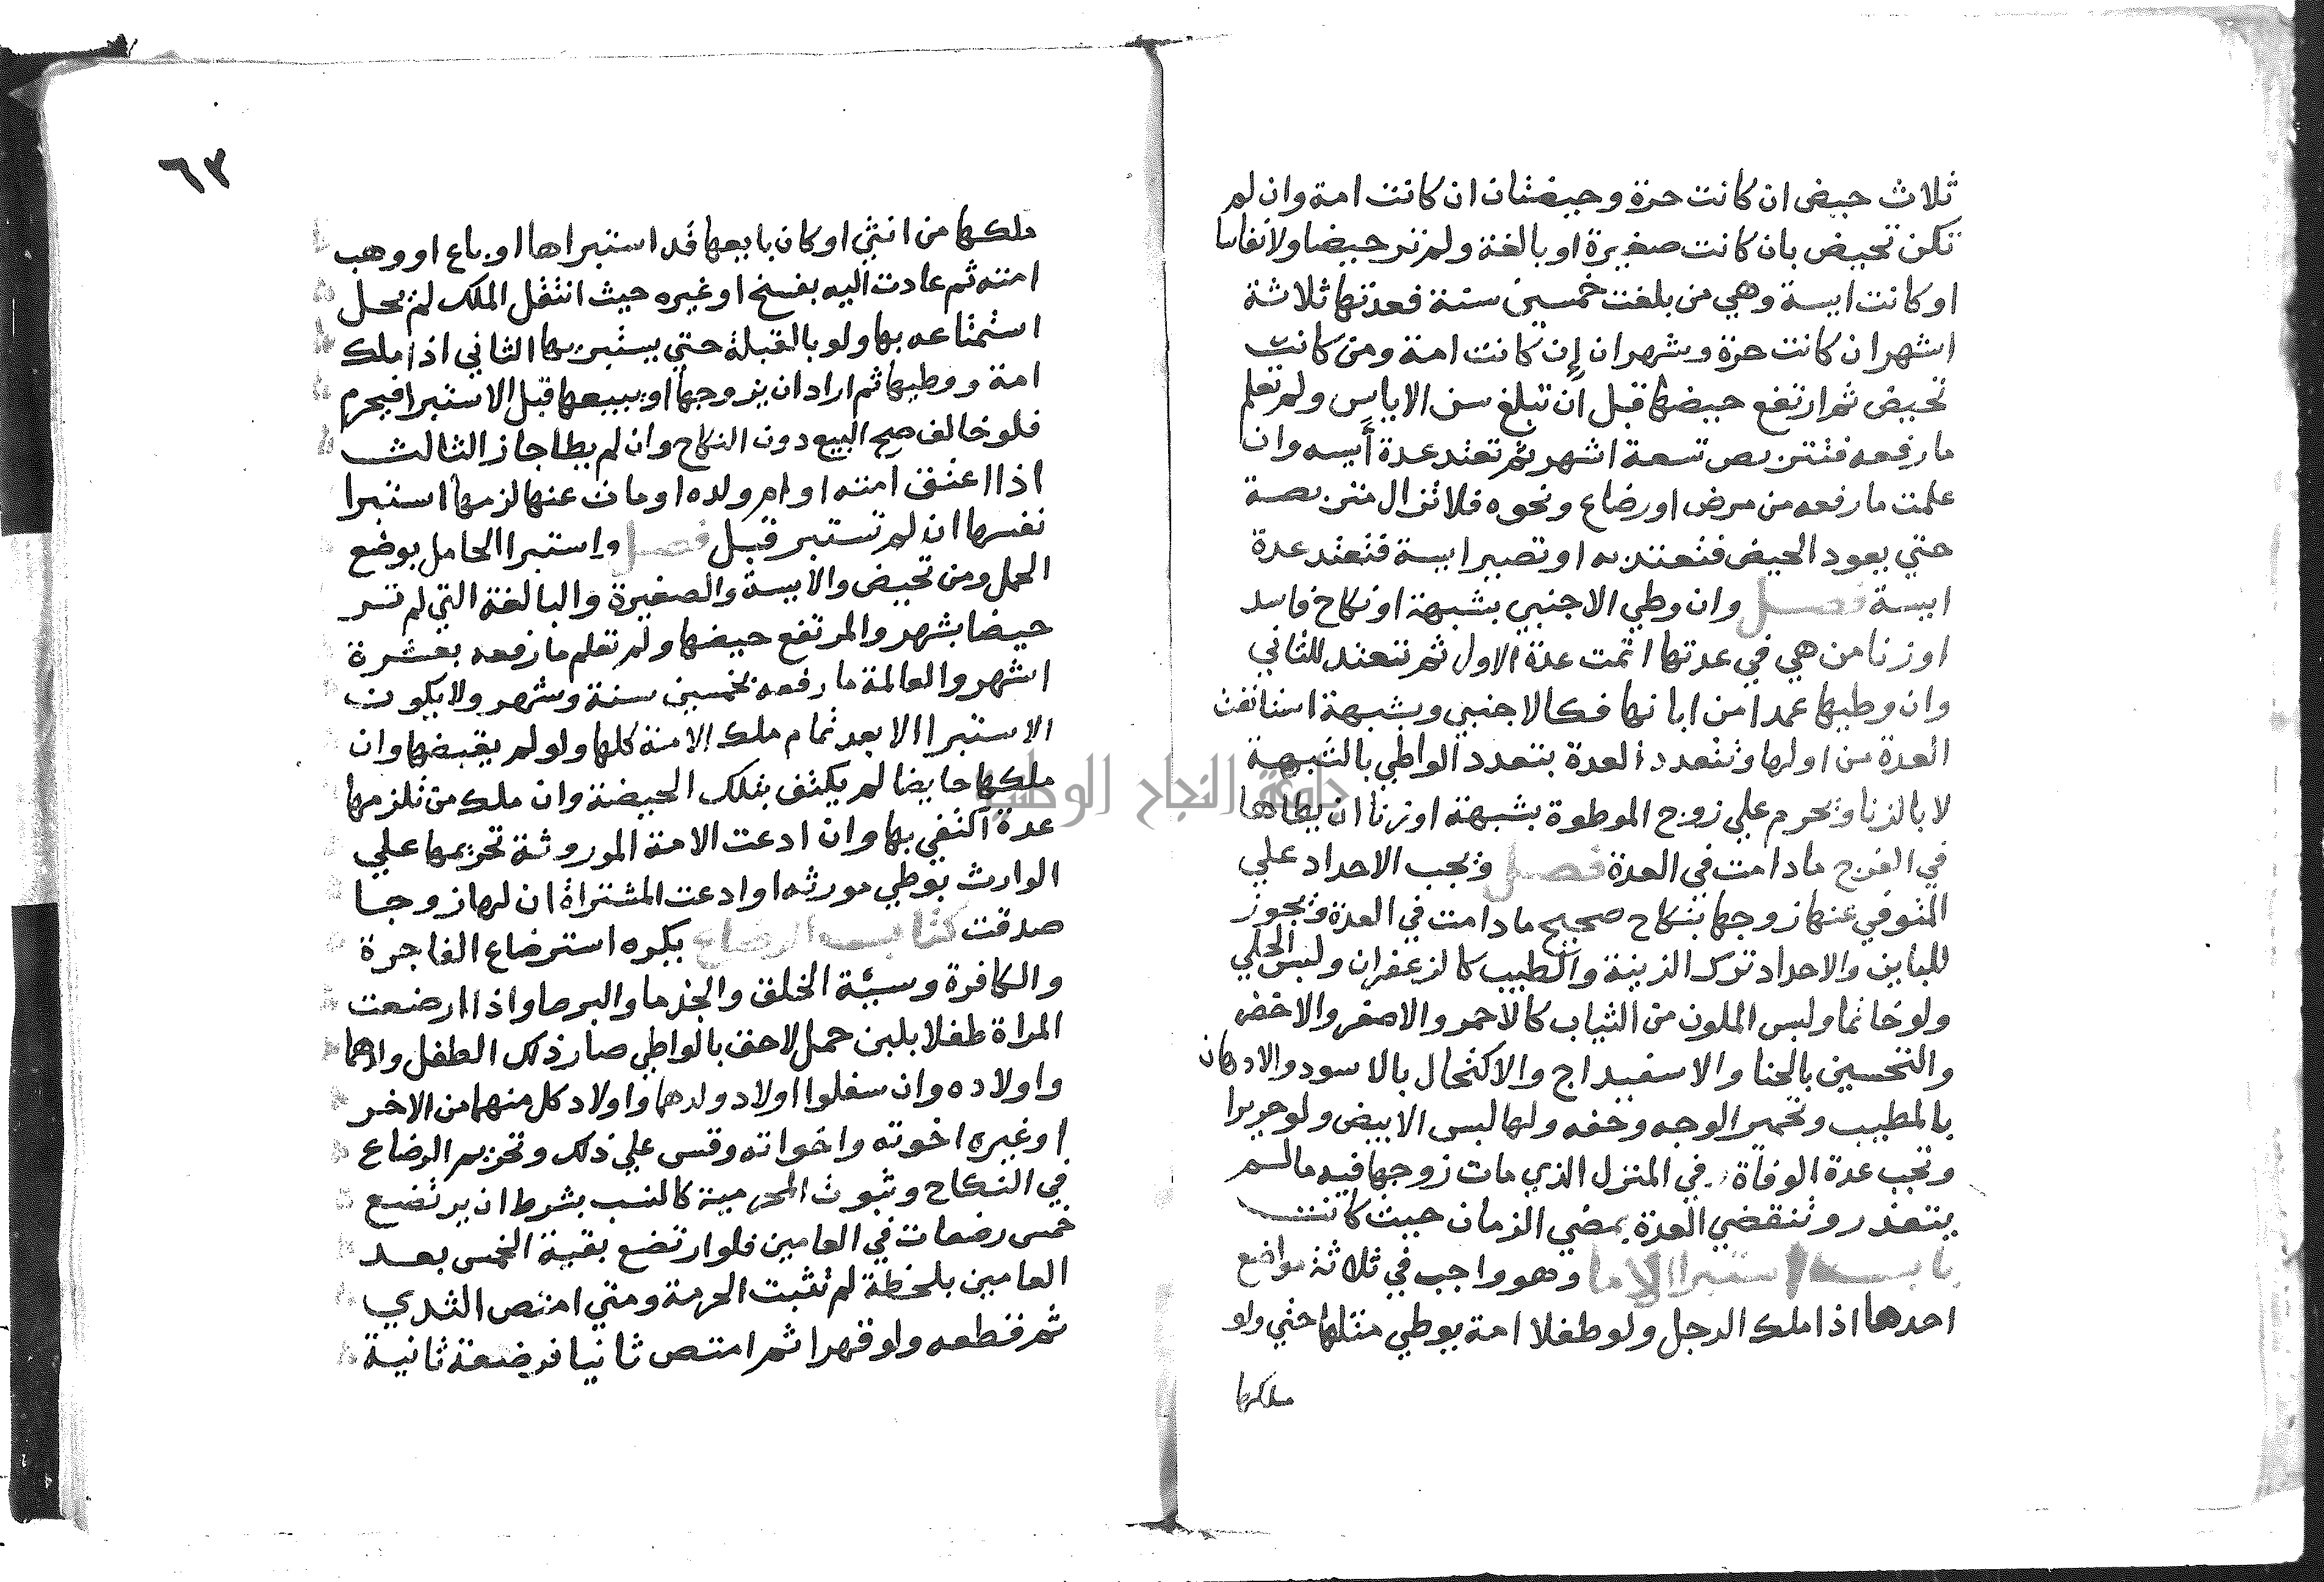 ثلاث حيض ان كانت حرة وحيضتان ان كانت امة وان لم
تكن تحيض بان كانت صغيرة او بالغة ولم تر حيضا ولا نفاسا
او كانت ايسة وهي من بلغت خمسين سنة فعدتها ثلاثة
اشهر ان كانت حرة وشهران إن كانت امة ومن كانت
تحيض ثم ارتفع حيضها قبل ان تبلغ سن الاياس ولم تعلم
ما رفعه فتتربص تسعة اشهر ثم تعتد عدة أيسه وان
علمت ما رفعه من مرض او رضاع ونحوه فلا تزال متربصة
حتي يعود الحيض فتعتد به او تصير ايسة فتعتد عدة
ايسة فصل وان وطي الاجنبي بشبهة او نكاح فاسد
او زنا من هي في عدتها اتمت عدة الاول ثم تعتد للثاني
وان وطيها عمدا من ابانها فكالاجنبي وبشبهة استانفت
العدة من اولها وتتعدد العدة بتعدد الواطي بالشبهة
لا بالزنا ويحرم علي زوج الموطوة بشبهة او زنا ان يطاها
في الفرج مادامت في العدة فصل ويجب الاحداد علي
المتوفي عنها زوجها بنكاح صحيح مادامت في العدة ويجوز
للباين والاحداد ترك الزينة والطيب كالزعفران ولبس الحلي
ولو خاتما ولبس الملون من الثياب كالاحمر والاصفر والاخضر
والتحسين بالحنا والاسفيداج والاكتحال بالاسود والادهان
بالمطيب وتحمير الوجه وحفه ولها لبس الابيض ولو حريرا
وتجب عدة الوفاة في المنزل الذي مات زوجها فيه مالم
يتعذر وتنقضي العدة بمضي الزمان حيث كانت
باب استبرا الاما وهو واجب في ثلاثة مواضع
احدها اذا ملك الرجل ولو طفلا امة يوطي مثلها حتي ولو
ملكها
٦٣
ملكها من انثي او كان بايعها قد استبراها او باع او وهب
امته ثم عادت اليه بفسخ او غيره حيث انتقل الملك لم يحل
استمتاعه بها ولو بالقبلة حتي يستبريها الثاني اذا ملك
امة ووطيها ثم اراد ان يزوجها او يبيعها قبل الاستبرا فيحرم
فلو خالف صح البيع دون النكاح وان لم يطا جاز الثالث
اذا اعتق امته او ام ولده او مات عنها لزمها استبرا
نفسها ان لم تستبر قبل فصل واستبرا الحامل بوضع
الحمل ومن تحيض والايسة والصغيرة والبالغة التي لم تر
حيضا بشهر والمرتفع حيضها ولم تعلم ما رفعه بعشرة
اشهر والعالمة ما رفعه بخمسين سنة وشهر ولا يكون
الاستبرا الا بعد تمام ملك الامة كلها ولو لم يقبضها وان
ملكها حايضا لم يكتف بتلك الحيضة وان ملك من تلزمها
عدة اكتفي بها وان ادعت الامة الموروثة تحريمها علي
الوارث بوطي مورثه او ادعت المشتراة ان لها زوجا
صدقت كتاب الرضاع يكره استرضاع الفاجرة
والكافرة وسيئة الخلق والجذما والبرصا واذا ارضعت
المراة طفلا بلبن حمل لاحق بالواطي صار ذلك الطفل ولدهما
واولاده وان سفلوا اولاد ولدهما واولاد كل منهما من الاخر
او غيره اخوته واخواته وقس علي ذلك وتحريم الرضاع
في النكاح وثبوت المحرمية كالنسب بشرط ان يرتضع
خمس رضعات في العامين فلو ارتضع بقية الخمس بعد
العامين بلحظة لم تثبت الحرمة ومتي امتص الثدي
ثم قطعه ولو قهرا ثم امتص ثانيا فرضعة ثانية
جامعة النجاح الوطنية